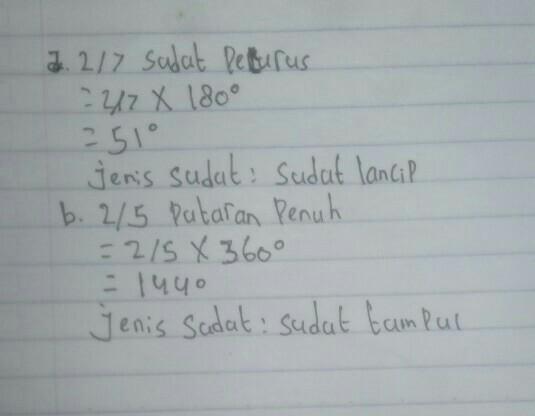 a. 2/7 sudat Pelurus
= 2/7 X 180°
= 51°
jenis sudut: Sudut lancip
b. 2/5 Putaran Penuh
= 2/5 X 360°
= 144°
jenis sudut: sudut tumpul